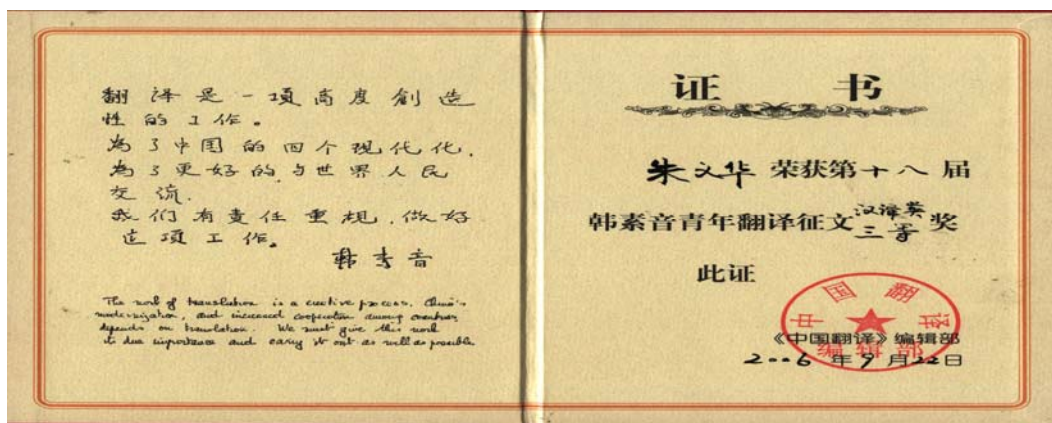 翻译是一項高度創造
性的工作。
為了中国的四个现代化,
為了更好的与世界人民
交流.
我们有責任重視.做好
这項工作。
韩素音
The work of translation is a creative process. China's
modernization, and increased cooperation among countries
depends on translation. We must give this work
its due importance and carry it out as well as possible
证 书
朱义华 荣获第十八届
韩素音青年翻译征文汉译英三等奖
此证
中国翻译
编辑部
《中国翻译》编辑部
2006年9月22日